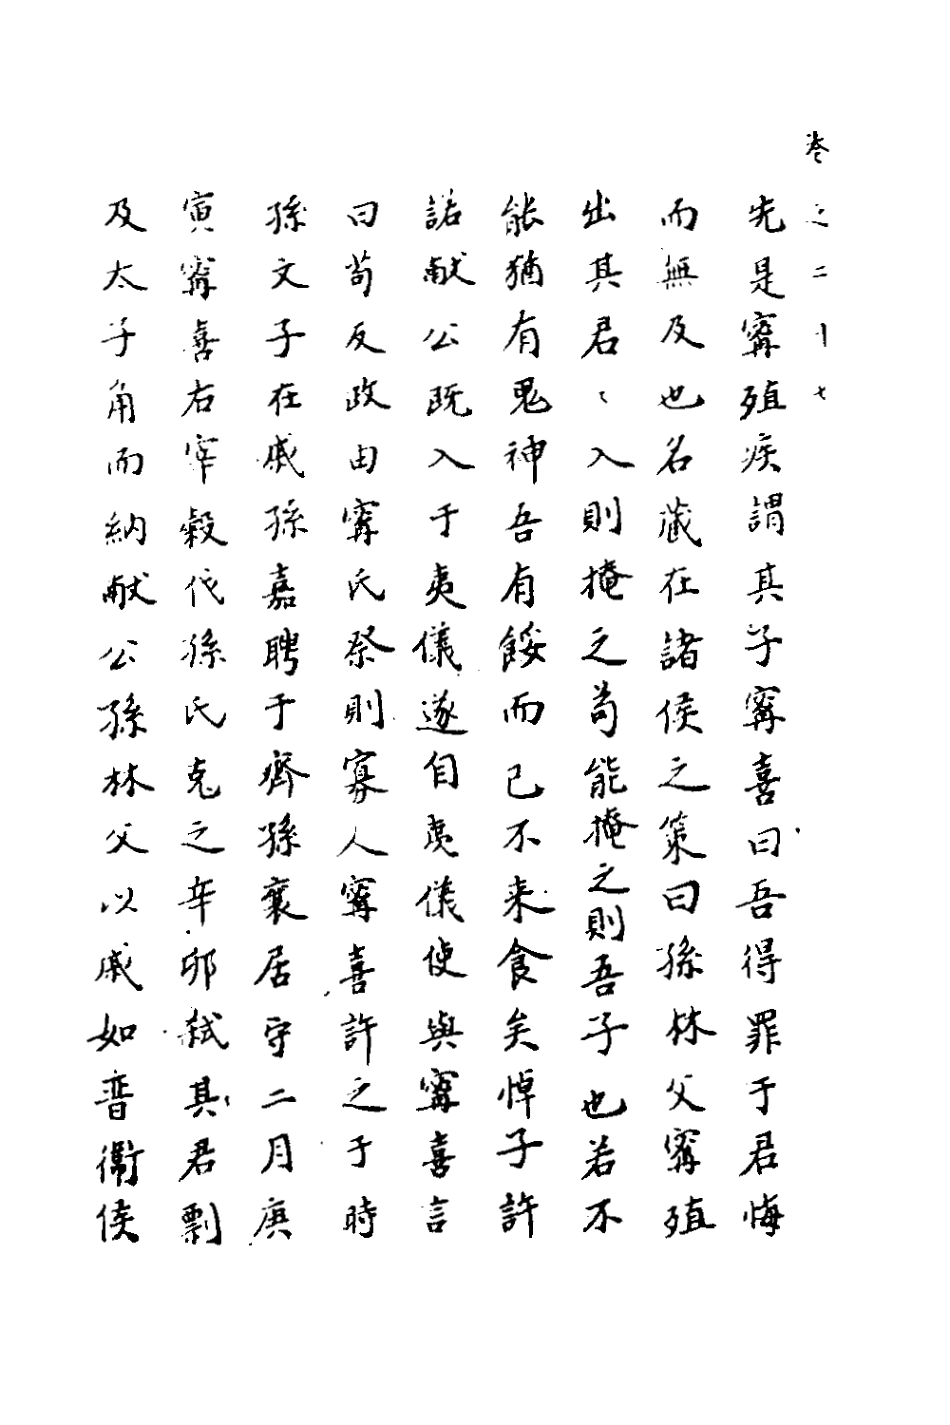 卷之二十七
先是寗殖疾謂其子寗喜曰吾得罪于君悔
而無及也名藏在諸侯之策曰孫林父寗殖
出其君〻入則掩之苟能掩之則吾子也若不
能猶有鬼神吾有餒而已不来食矣悼子許
諾獻公既入于夷儀遂自夷儀使與寗喜言
曰苟反政由寗氏祭則寡人寗喜許之于時
孫文子在戚孫嘉聘于齊孫襄居守二月庚
寅寗喜右宰穀伐孫氏克之辛卯弑其君剽
及太子角而納献公孫林父以戚如晉衞侯